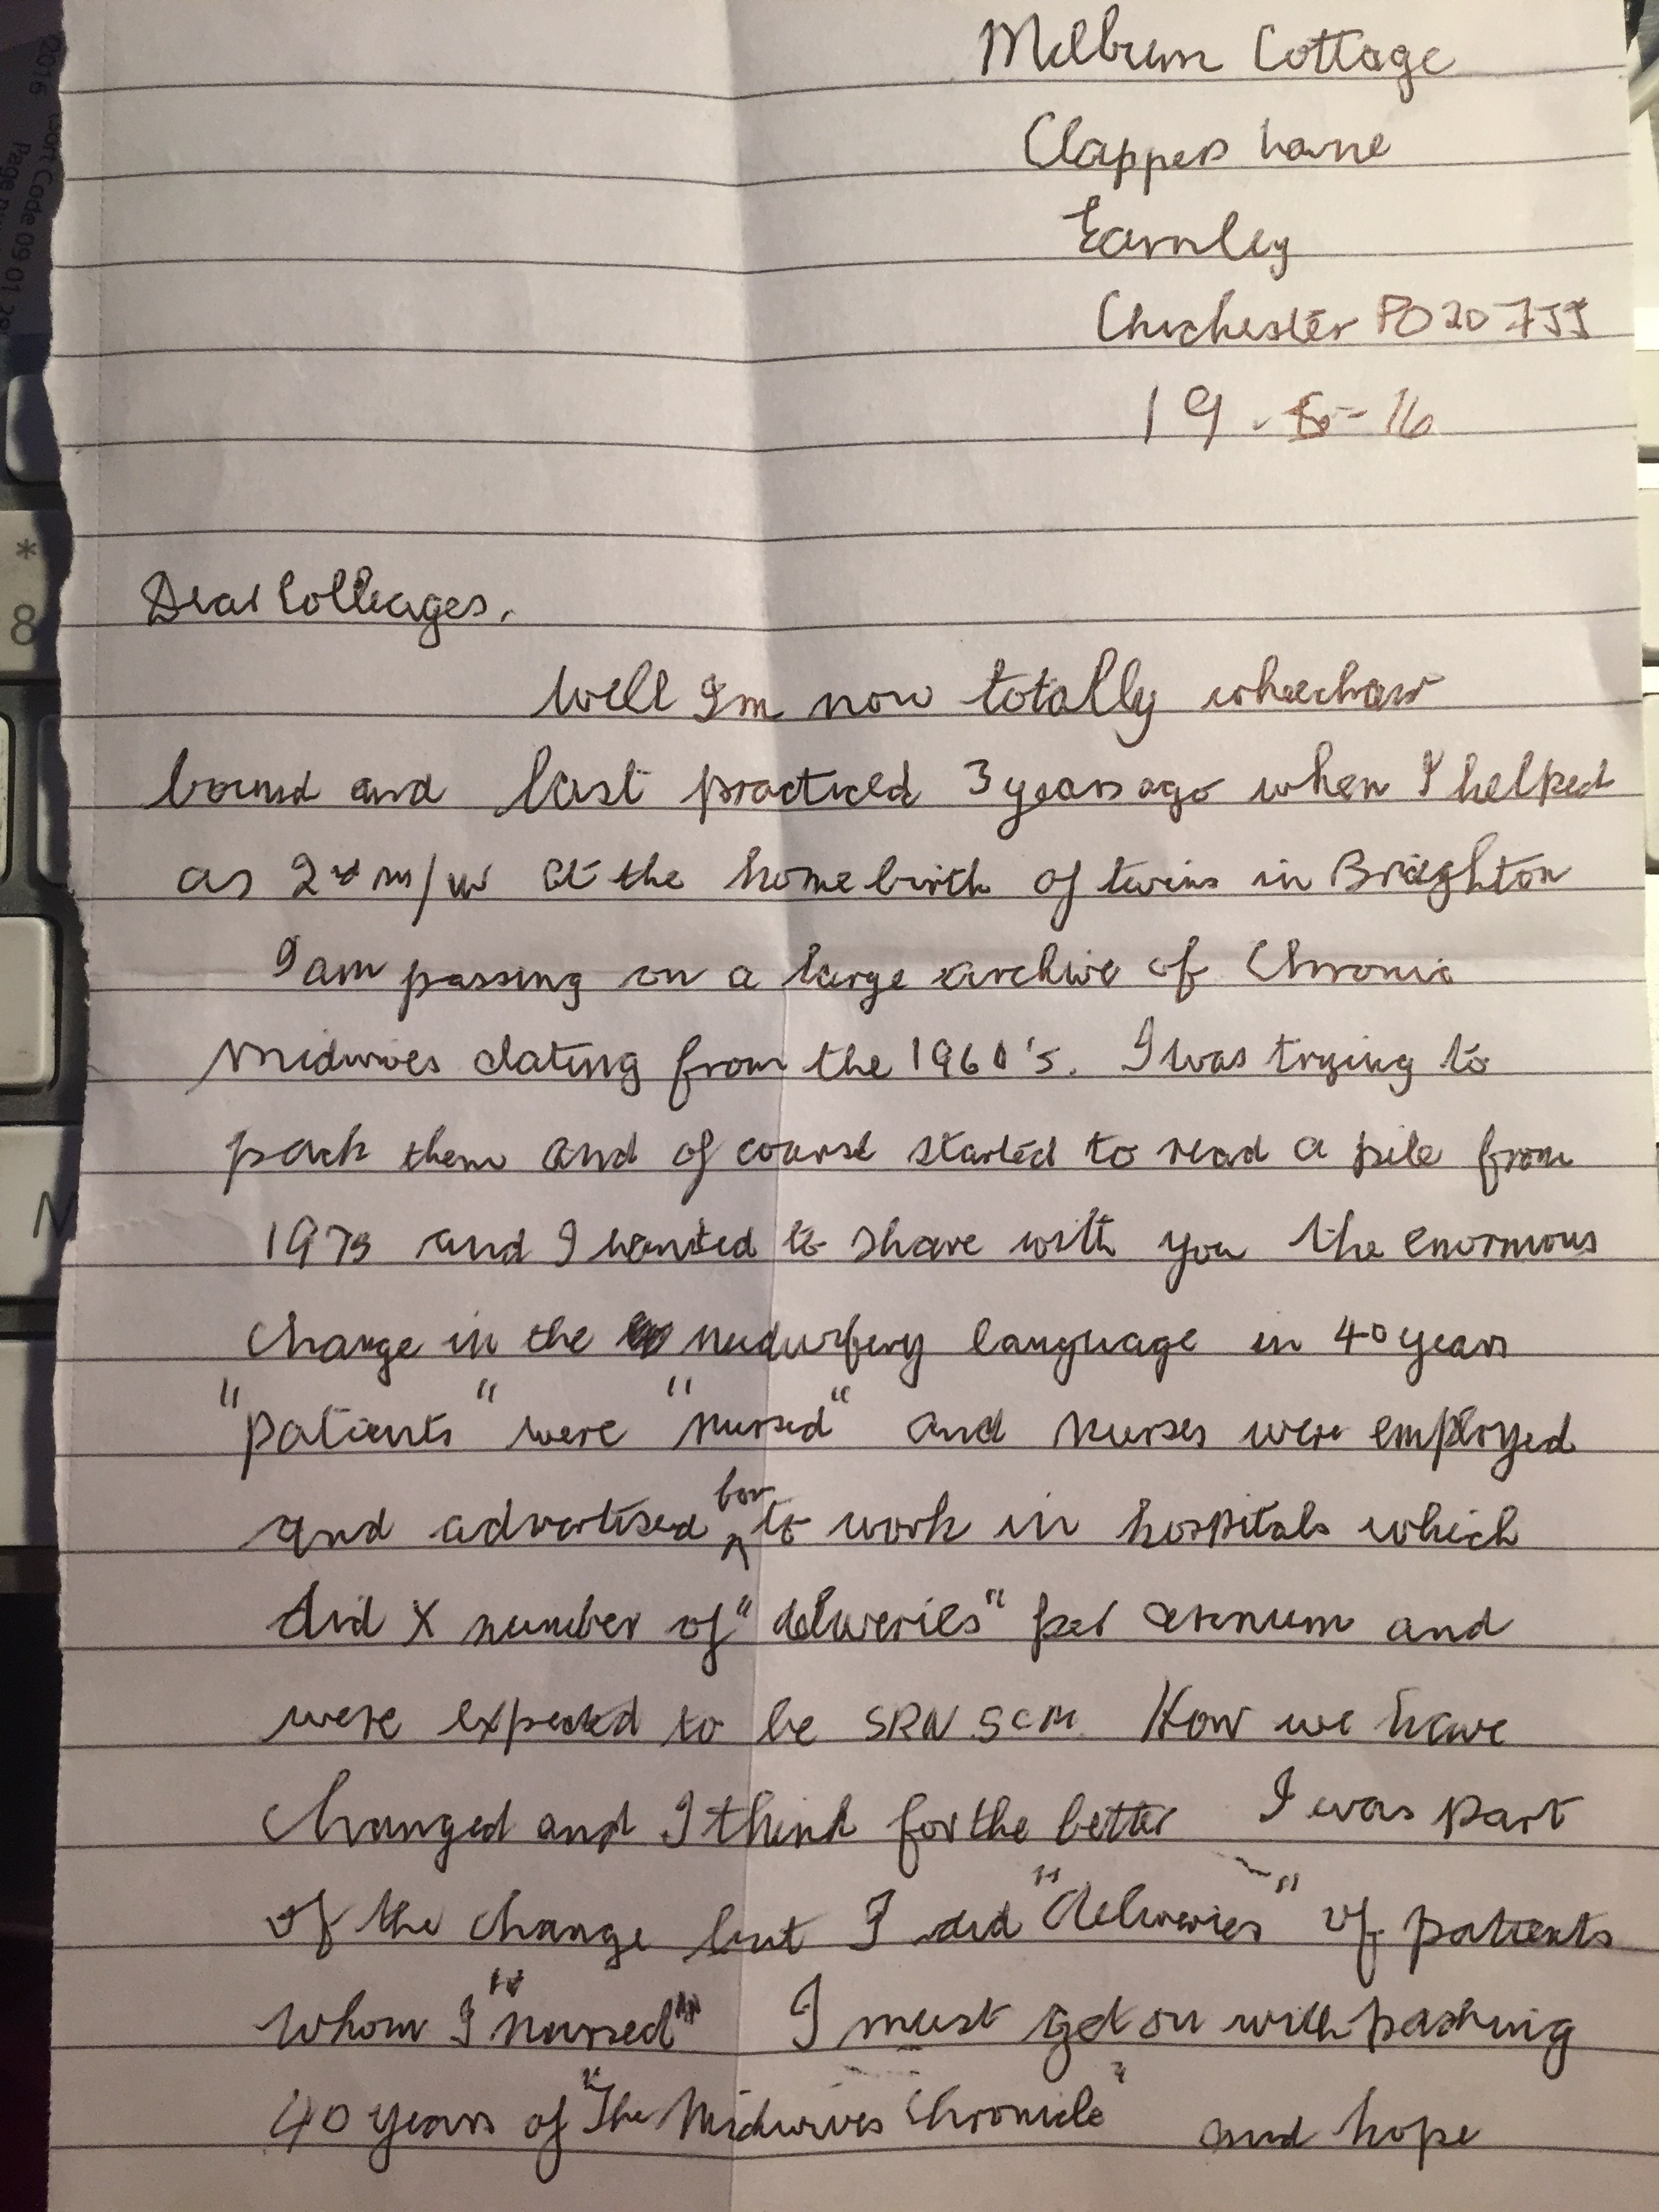 Melbum Cottage
Clappers Lane
Earnley
Chichester PO20 7JJ
19 - - 16
Dear Colleages,
Well I'm now totally wheechair
bound and last practiced 3 years ago when I helped
as 2nd m/w at the home birth of twins in Brighton
I am passing on a large archive of Chronic
midwives dating from the 1960's. I was trying to
pack them and of course started to read a pile from
and I wanted to share with you the enormous
change in the midwifery language in 40 years
"patients" were "nursed" and nurses were employed
and advertised for to work in hospitals which
did X number of "deliveries" per annum and
were expected to be SRN SCM. How we have
changed and I think for the better I was part
of the change but I did "deliveries" of patients
whom I "nursed" I must get on with pashing
40 years of "The Midwives Chronicle" and hope
2016
Sort Code 09 01 28
Page
*
8
N